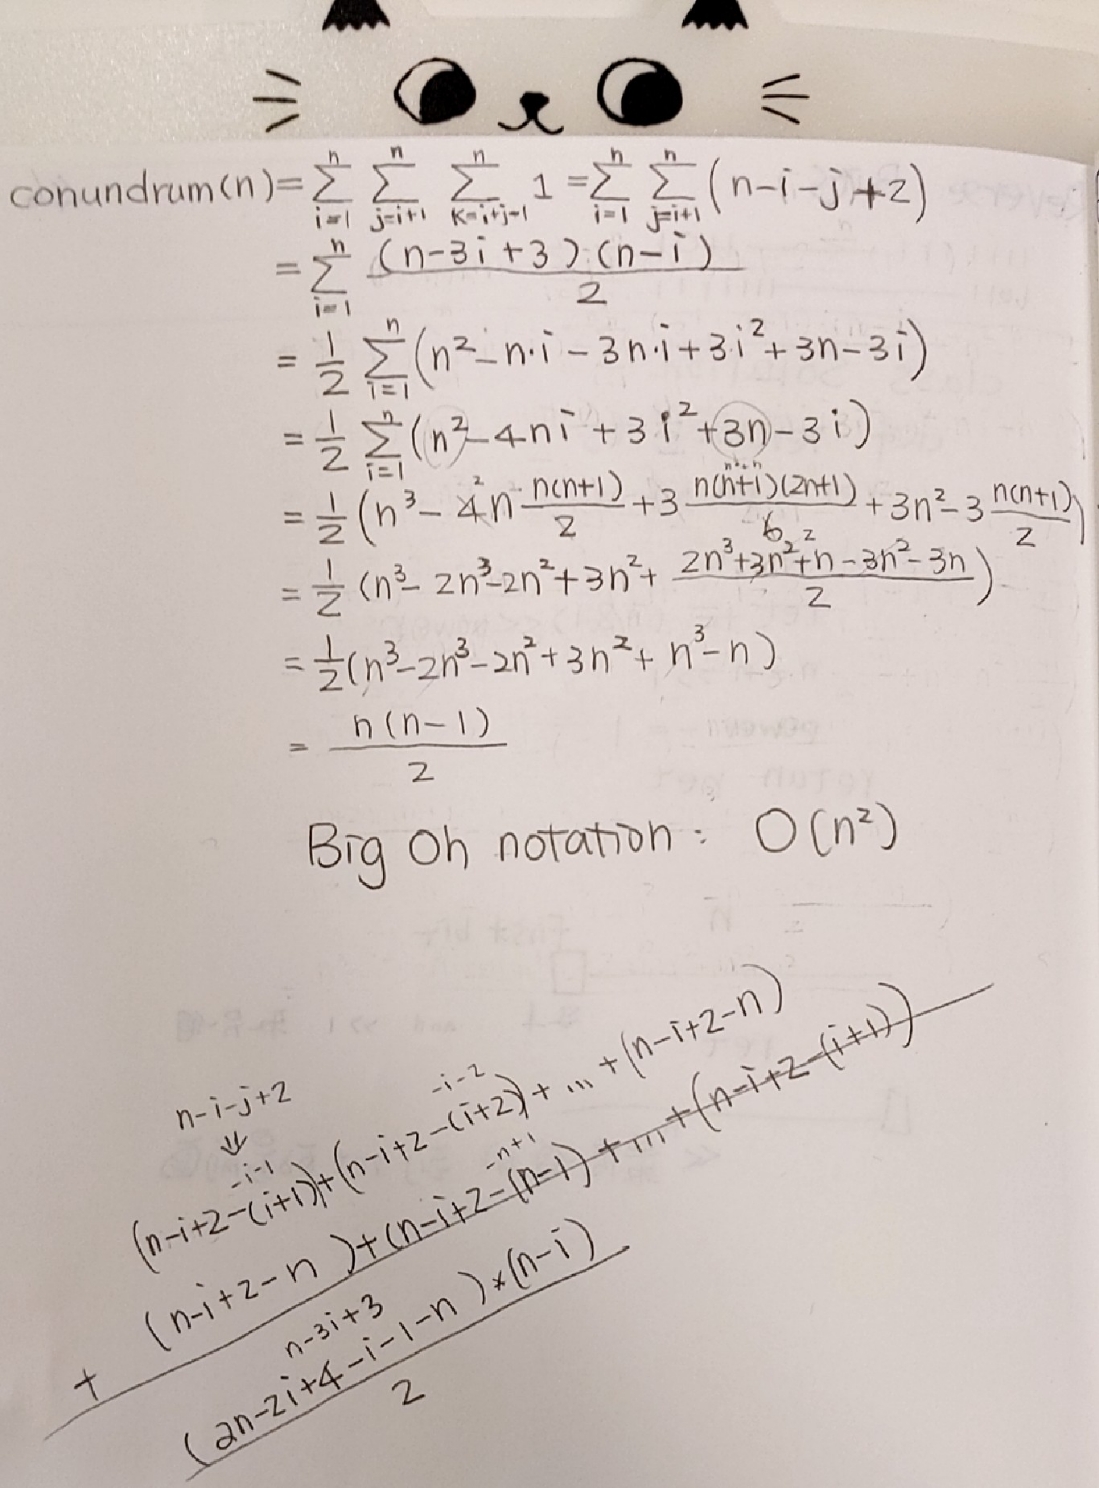 conundrum(n)=∑_{i=1}^{n} ∑_{j=i+1}^{n} ∑_{k=i+j-1}^{n} 1 = ∑_{i=1}^{n} ∑_{j=i+1}^{n} (n-i-j+2)
= ∑_{i=1}^{n} (n-3i+3)·(n-i) / 2
= 1/2 ∑_{i=1}^{n} (n²-n·i-3n·i+3i²+3n-3i)
= 1/2 ∑_{i=1}^{n} (n²-4ni+3i²+3n-3i)
= 1/2 (n³- 4n n(n+1)/2 +3 n(n+1)(2n+1)/6 +3n²-3 n(n+1)/2)
= 1/2 (n³-2n³-2n²+3n²+ (2n³+3n²+n-3n²-3n)/2)
= 1/2 (n³-2n³-2n²+3n²+n³-n)
= n(n-1) / 2
Big Oh notation : O(n²)
n-i-j+2
⇓
-i-1 -i-2
(n-i+2-(i+1))+(n-i+2-(i+2))+...+(n-i+2-n)
-n+1
(n-i+2-n)+(n-i+2-(n-1))+...+(n-i+2-(i+1))
+
n-3i+3
(2n-2i+4-i-1-n)×(n-i)
2